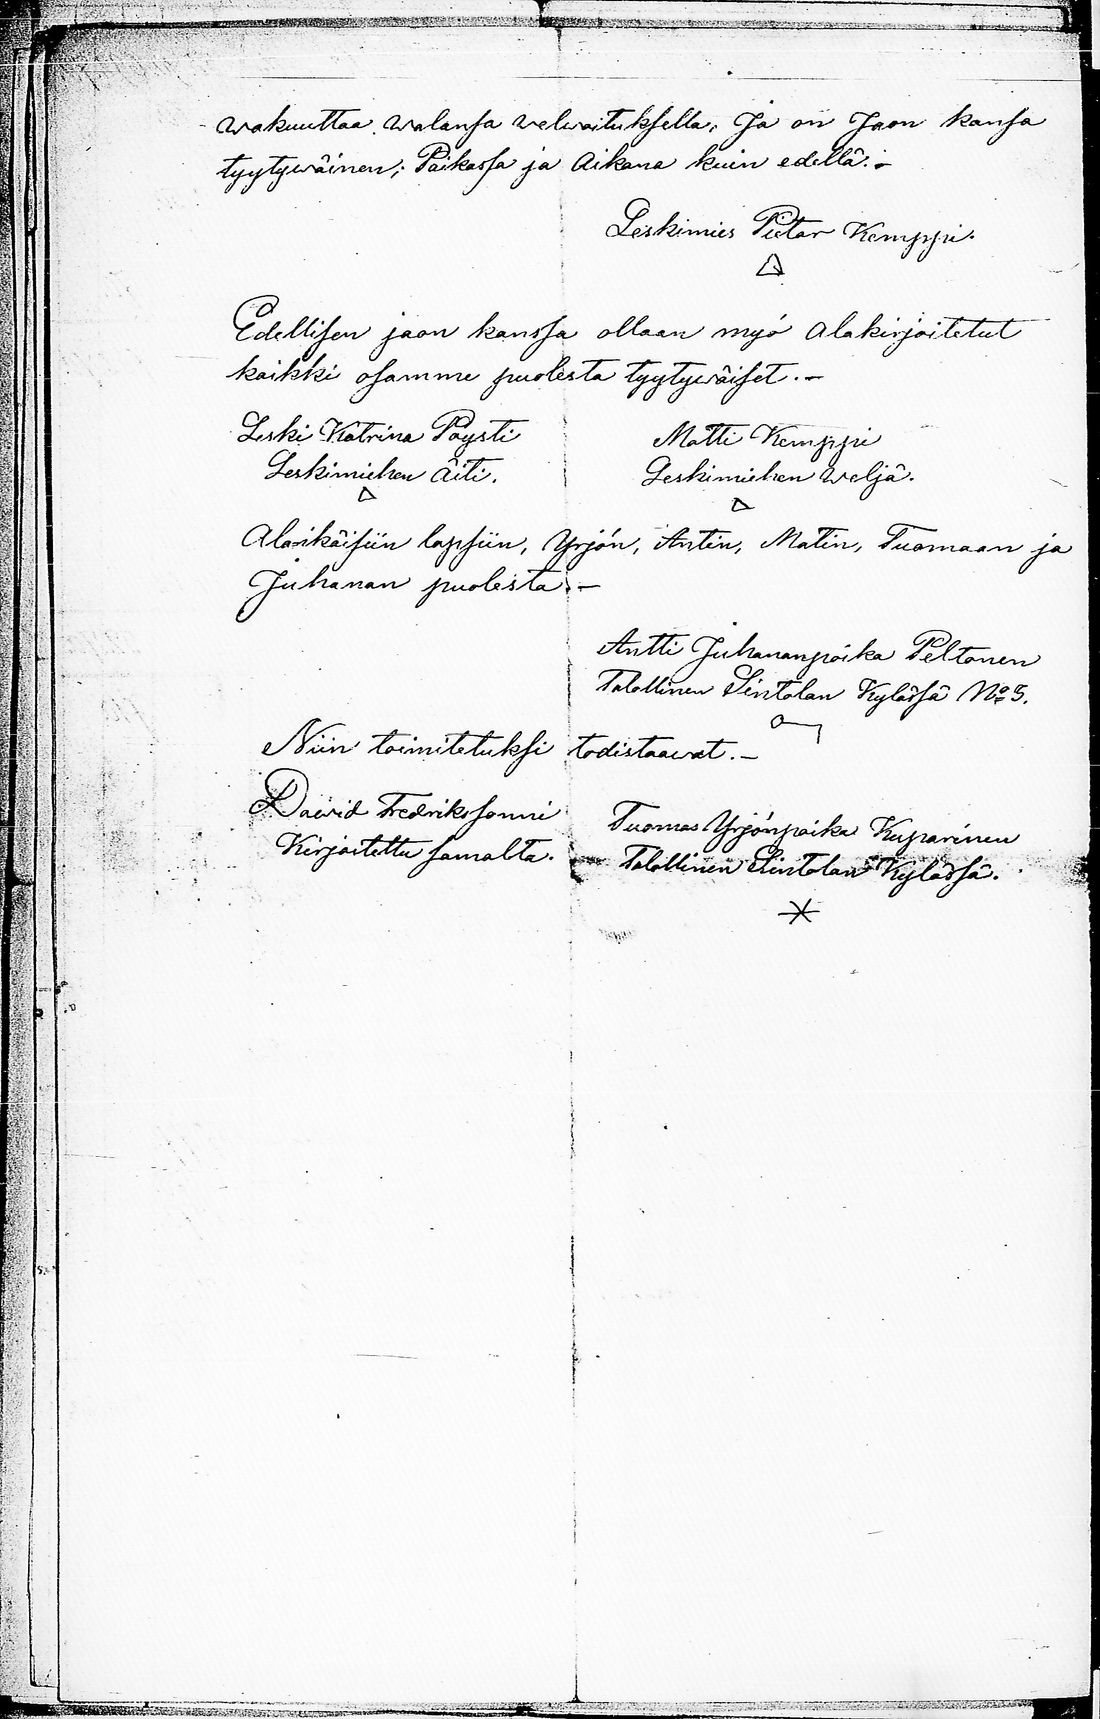 wakuuttaa walansa welwoituksella, Ja on Jaon kansa
tyytywäinen; Paikassa ja Aikana kuin edellä.-
Leskimies Pietar Kemppi.
Edellisen jaon kanssa ollaan myö alakirjoitetut
kaikki osamme puolesta tyytywäiset.-
Leski Katrina Pöysti
Leskimiehen Äiti.
Matti Kemppi
Leskimiehen weljä.
Alaikäisiin lapsiin, Yrjön, Antin, Matin, Tuomaan ja
Juhanan puolesta.-
Antti Juhananpoika Peltonen
Talollinen Sintolan Kylässä No 3.
Niin toimitetuksi todistaawat.-
Dawid Fredriksonni
Kirjoitettu samalta.
Tuomas Yrjönpoika Kuparinen
Talollinen Sintolan Kylässä.